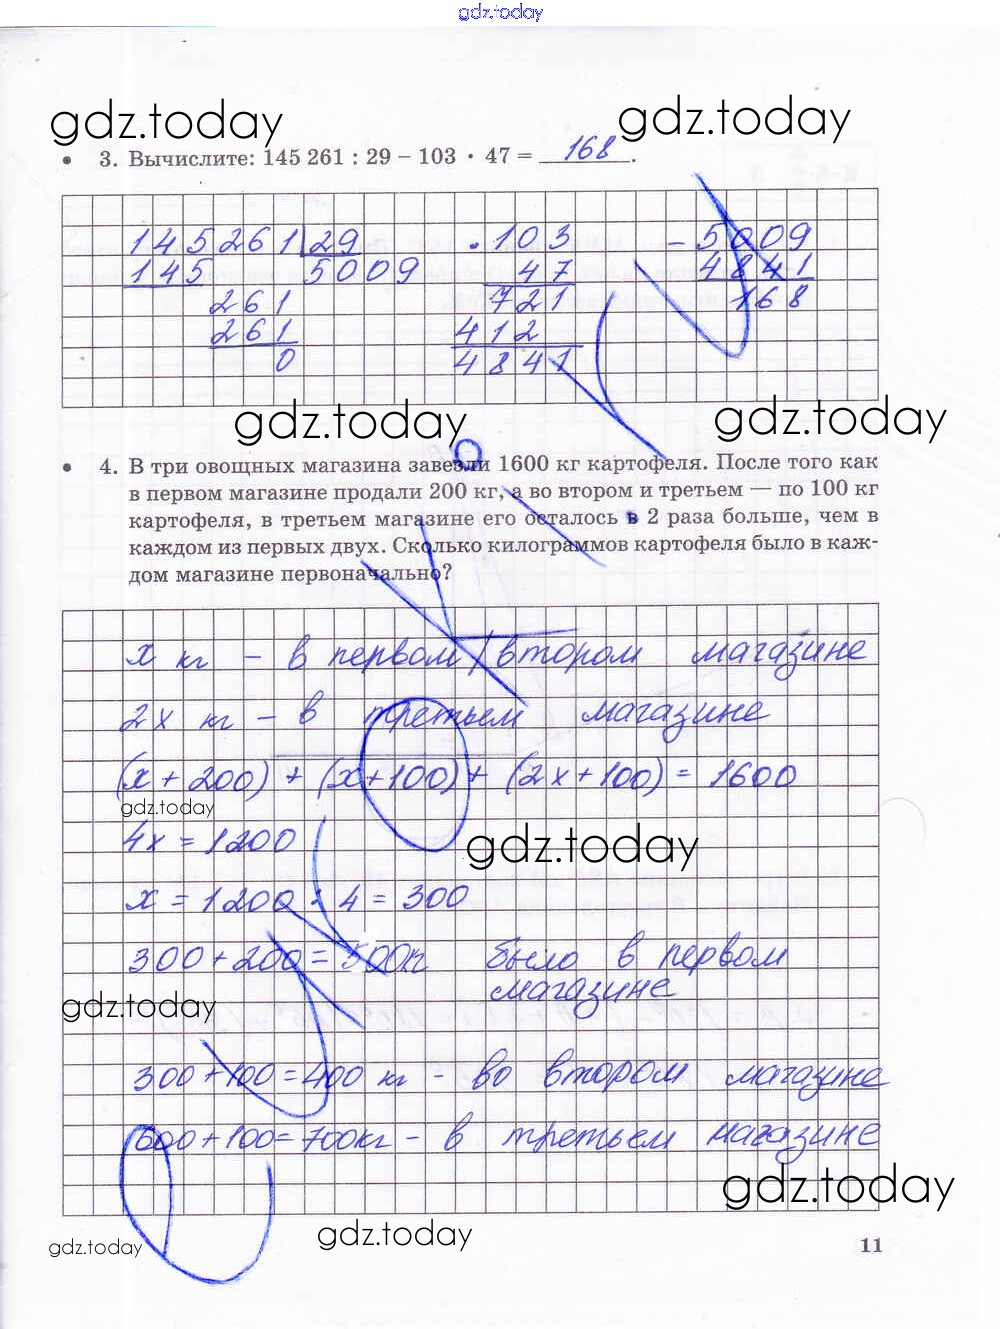 gdz.today
gdz.today
gdz.today
• 3. Вычислите: 145 261 : 29 – 103 · 47 = 168.
145261 29 · 103 – 5009
145 5009 47 4841
261 721 168
261 412
0 4841
gdz.today
gdz.today
• 4. В три овощных магазина завезли 1600 кг картофеля. После того как
в первом магазине продали 200 кг, а во втором и третьем — по 100 кг
картофеля, в третьем магазине его осталось в 2 раза больше, чем в
каждом из первых двух. Сколько килограммов картофеля было в каж-
дом магазине первоначально?
x кг – в первом/втором магазине
2x кг – в третьем магазине
(x + 200) + (x + 100) + (2x + 100) = 1600
gdz.today
4x = 1200
gdz.today
x = 1200 : 4 = 300
300 + 200 = 500кг было в первом
магазине
gdz.today
300 + 100 = 400 кг – во втором магазине
600 + 100 = 700кг – в третьем магазине
gdz.today
gdz.today
gdz.today
11